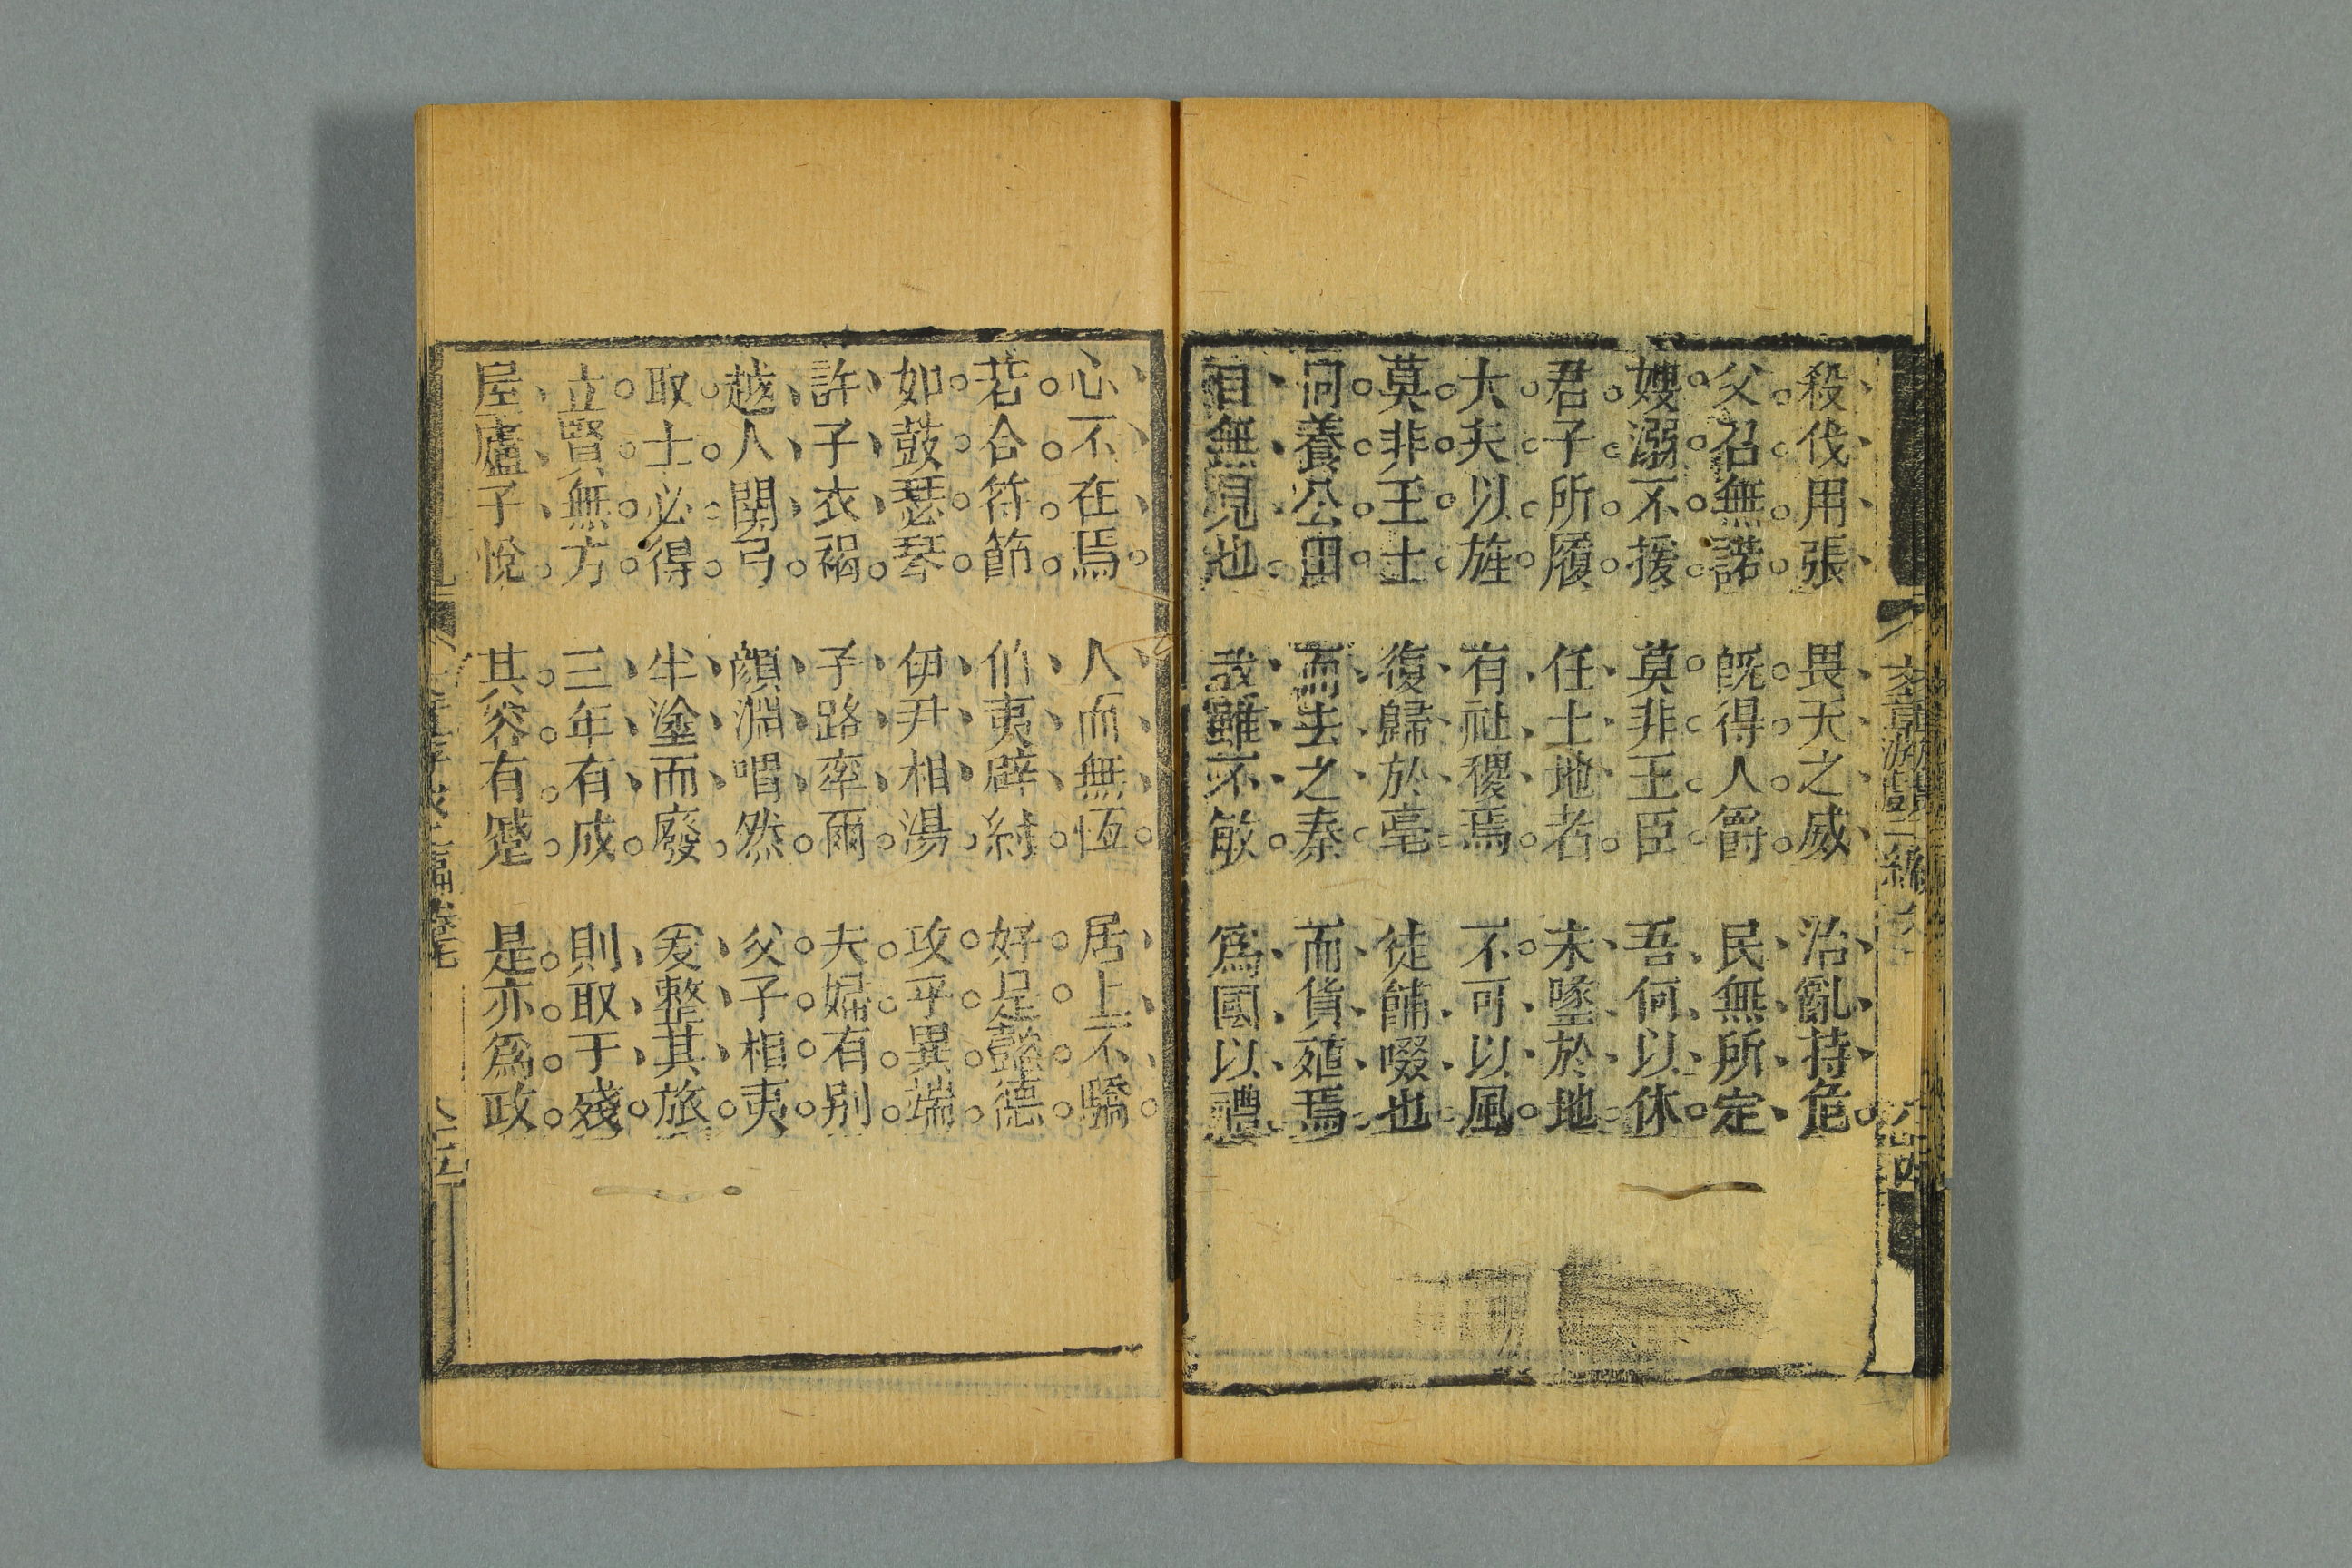 殺伐用張 畏天之威 治亂持危
父召無諾 旣得人爵 民無所定
嫂溺不援 莫非王臣 吾何以休
君子所履 任土地者 未墜於地
大夫以旌 有社稷焉 不可以風
莫非王土 復歸於亳 徒餔啜也
同養公田 而去之秦 而貨殖焉
目無見也 我雖不敏 爲國以禮
心不在焉 人而無恆 居上不驕
若合符節 伯夷辟紂 好是懿德
如鼓瑟琴 伊尹相湯 攻乎異端
許子衣褐 子路率爾 夫婦有別
越人關弓 顏淵喟然 父子相夷
取士必得 半塗而廢 爰整其旅
立賢無方 三年有成 則取于殘
屋廬子悅 其容有蹙 是亦爲政